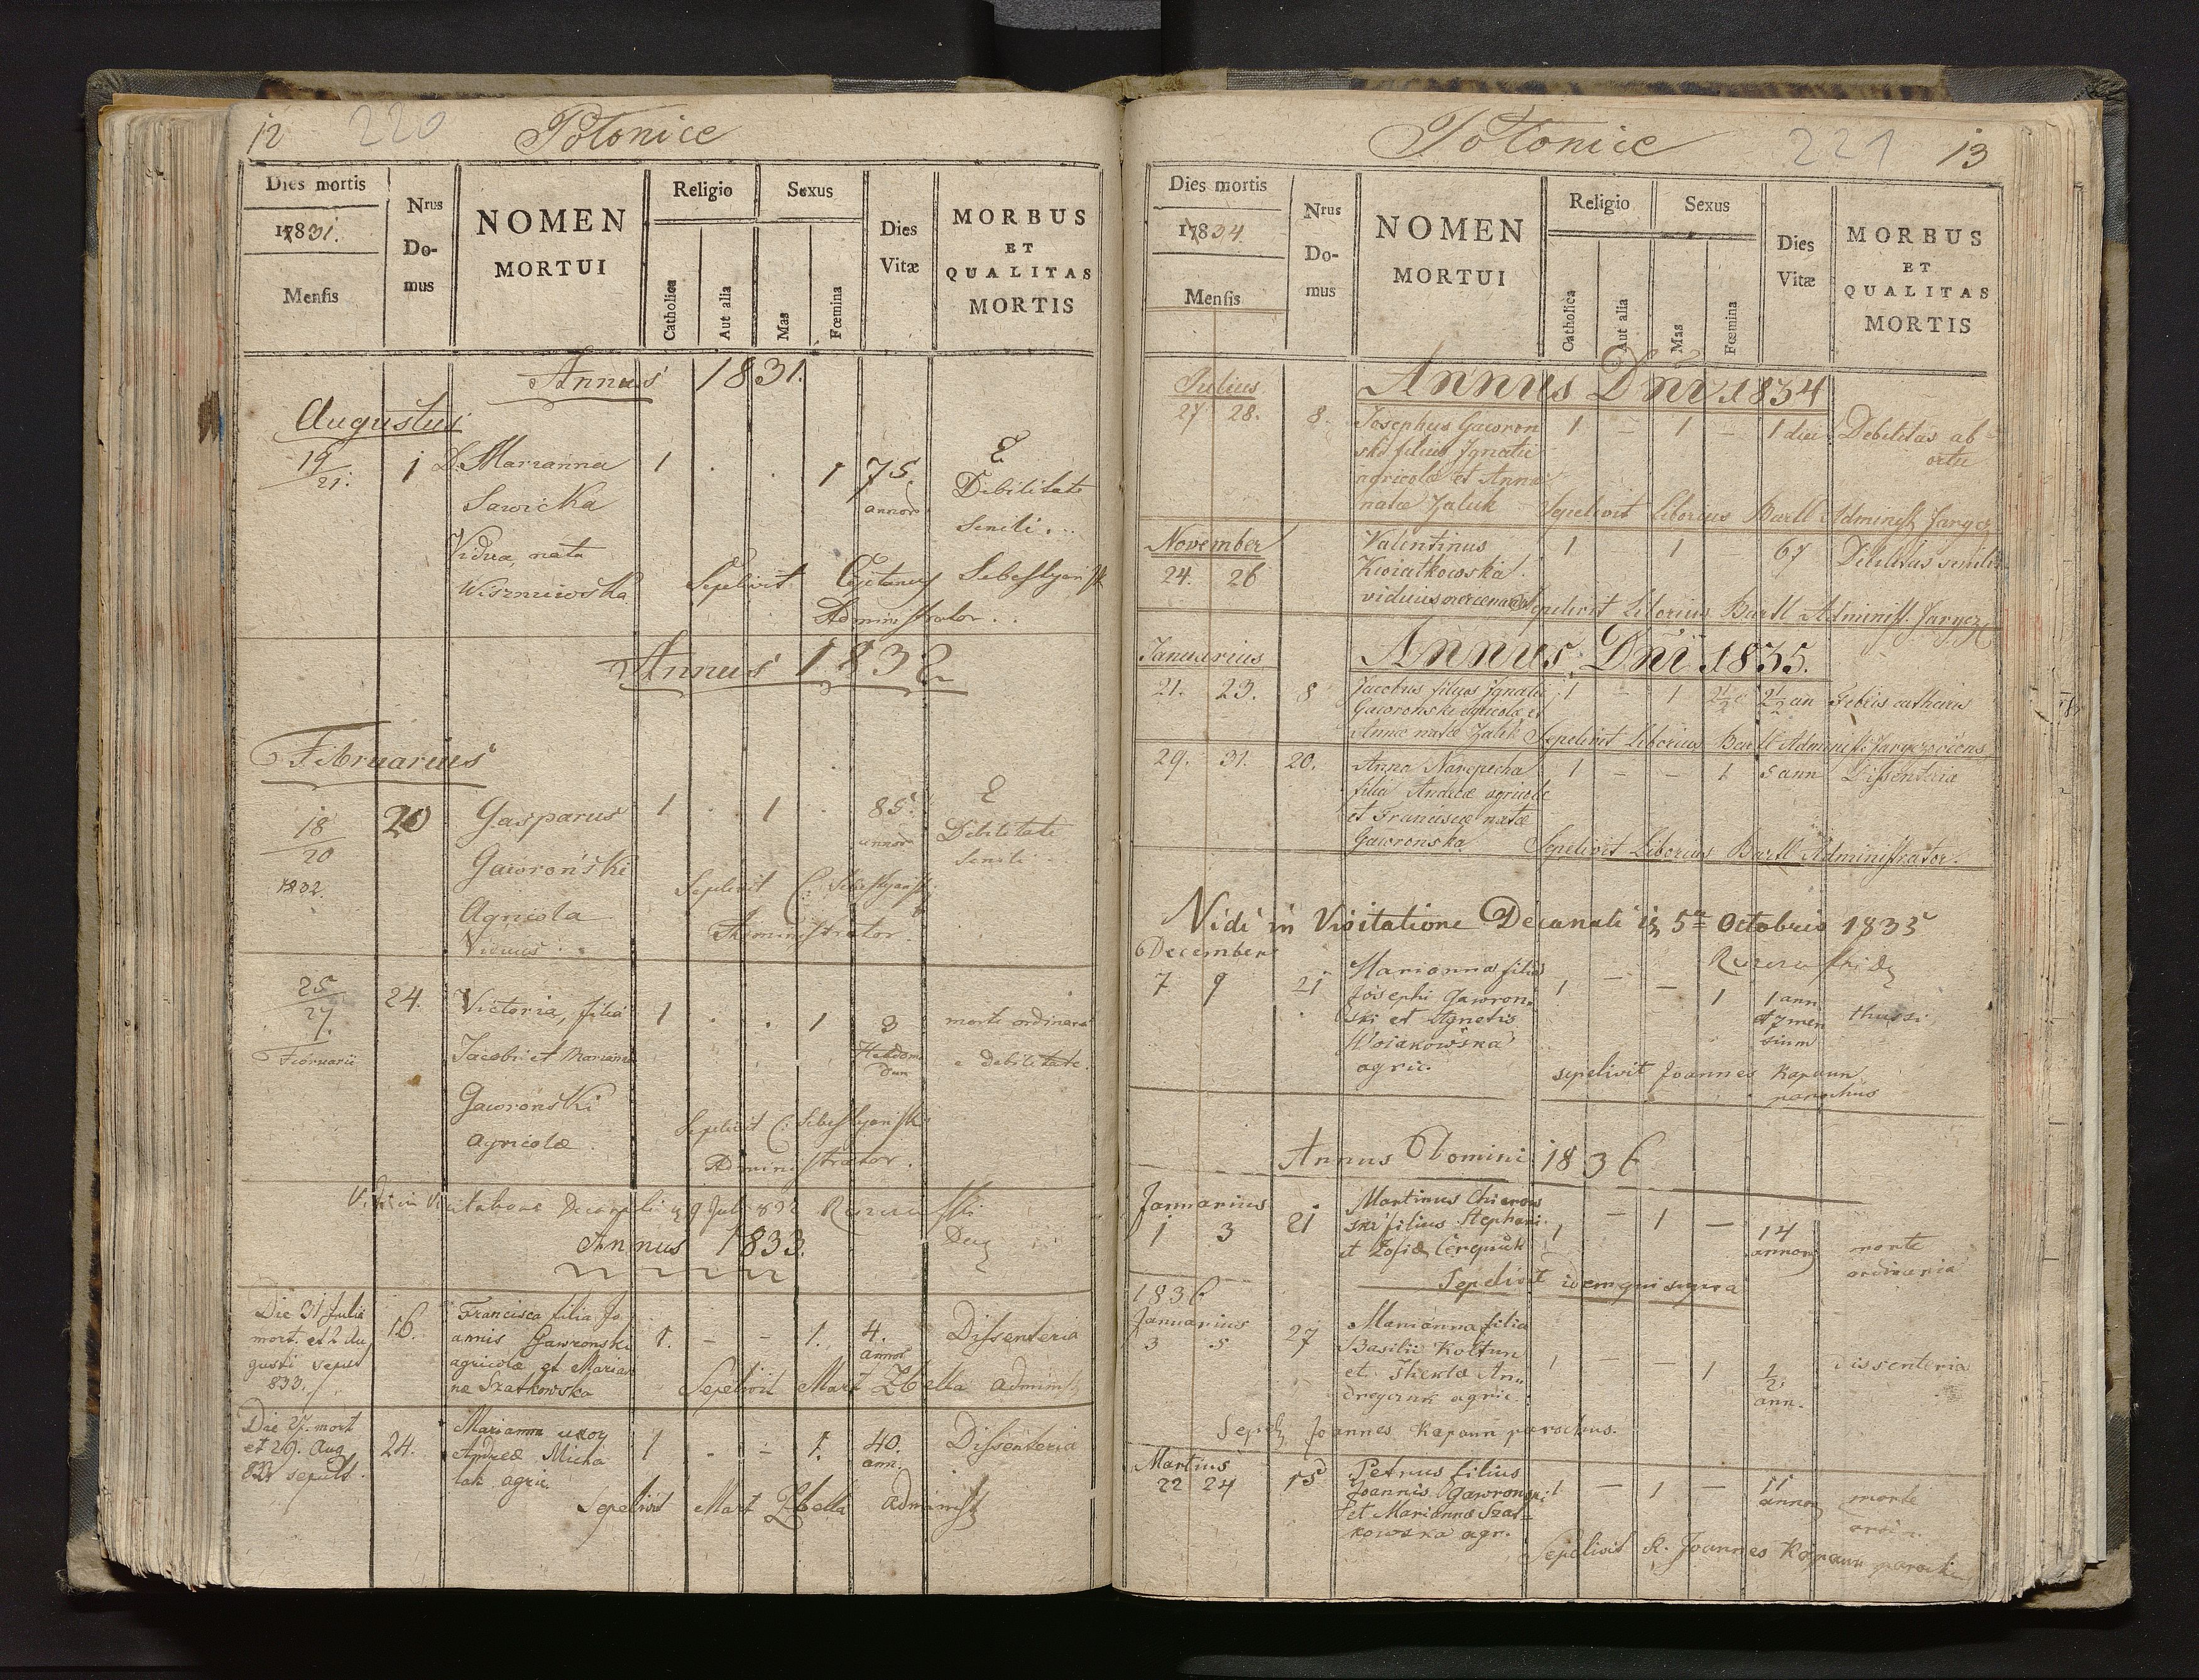 12 220 Połonice
Dies mortis
1831.
Mensis
Nrus
Do-
mus
NOMEN
MORTUI
Religio
Catholica
Aut alia
Sexus
Mas
Fœmina
Dies
Vitæ
MORBUS
ET
QUALITAS
MORTIS
Annus 1831.
Augustus
19/21. 1 D. Marianna 1 . . 1 75. E
Sawicka annor Debilitate
Vidua, nata Senili...
Wiszniewska Sepelivit Cajetanus Sebestyański
Administrator..
Annus 1832
Februarius
18/20 20 Gasparus 1 . 1 . 85. E
1832. Gawroński annor Debilitate
Agricola Senili
Viduus Sepelivit C: Sebestyański
Administrator.
25/27. 24. Victoria, filia 1 . . 1 3 morte ordinaria
Februarii Jacobi et Marianna Hebdoma dum e debilitate.
Gawroński
Agricolæ Sepelivit C: Sebestyański
Administrator.
Vidi in Visitatione Decanali 9 Jul 832
Annus 1833.
Die 31 Julii 16. Francisca filia Jo- 1. - - 1. 4. Dissenteria
mort. et 2 Au annis Gawronski annor
gusti sepult agricolæ et Marian
833. næ Szatkowska Sepelivit Mart Zbella administ
Die 27. mort 24. Marianna uxor 1 . - 1. 40. Dissenteria
et 29. Aug Andreæ Micha ann.
833 sepult. lak agric.
Sepelivit Mart Zbella administ
Połonice 221 13
Dies mortis
1834.
Mensis
Nrus
Do-
mus
NOMEN
MORTUI
Religio
Catholica
Aut alia
Sexus
Mas
Fœmina
Dies
Vitæ
MORBUS
ET
QUALITAS
MORTIS
Annus Dni 1834
Julius
27 28. 8. Josephus Gawron 1 - 1 - 1 diei Debilitas ab
ski filius Ignatii ortu
agricolæ et Anna
natæ Zaluk Sepelivit Liborius Bartl Administ
November Valentinus 1 1 - 67 Debilitas senilis
24. 26 Kwiatkowska
viduus Sepelivit Liborius Bartl Administ.
Annus Dni 1835.
Januarius
21. 23. 8 Jacobus filius Ignatii 1 - 1 2 1/2 an Febris catharis
Gawronski agricolæ et
Annæ natæ Zaluk Sepelivit Liborius Bartl Administ.
29. 31. 20. Anna Narepecha 1 - - 1 5 ann Dissenteria
filia Andreæ agricolæ
et Franciscæ natæ
Gawronska Sepelivit Liborius Bartl Administrator.
Vidi in Visitatione Decanali 5ta Octobris 1835
6 December
7 9 21 Marianna filia 1 - - 1 1 ann. thussi
Josephi Gawron- et 7 men
ski et Agnetis sium
Woiakowska
agric. sepelivit Joannes Kapaun
parochus
Annus Domini 1836
Januarius
1 3 21 Martinus 1 - 1 - 14 morte
ski filius Stephani annor ordinaria
et Zofiæ
Sepelivit idem qui supra
1836
Januarius
3 5 27 Marianna filia 1 - - 1 1/2 ann. dissenteria
Basilii Kołtun
et Theklæ An-
dreyczuk agric.
Sepel Joannes Kapaun parochus.
Martius
22 24 15 Petrus filius 1 - 1 - 11 morte
Joannis Gawronski annor ordin.
et Mariannæ Szat-
kowska agr.
Sepelivit R. Joannes Kapaun parochus